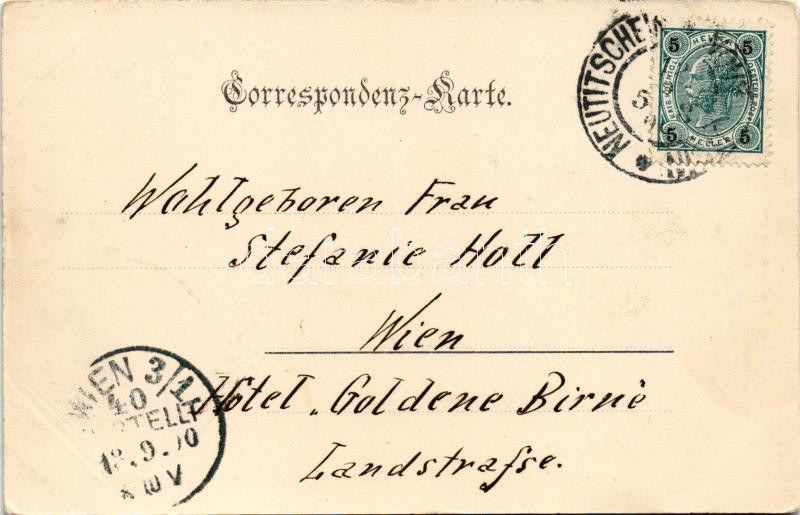 Correspondenz-Karte.
NEUTITSCHEIN
5 HELLER 5
5 HELLER 5
Wohlgeboren Frau
Stefanie Holl
Wien
Hôtel „Goldene Birne
Landstraſse.
WIEN 3/1
40
BESTELLT
13.9.00
darabanth